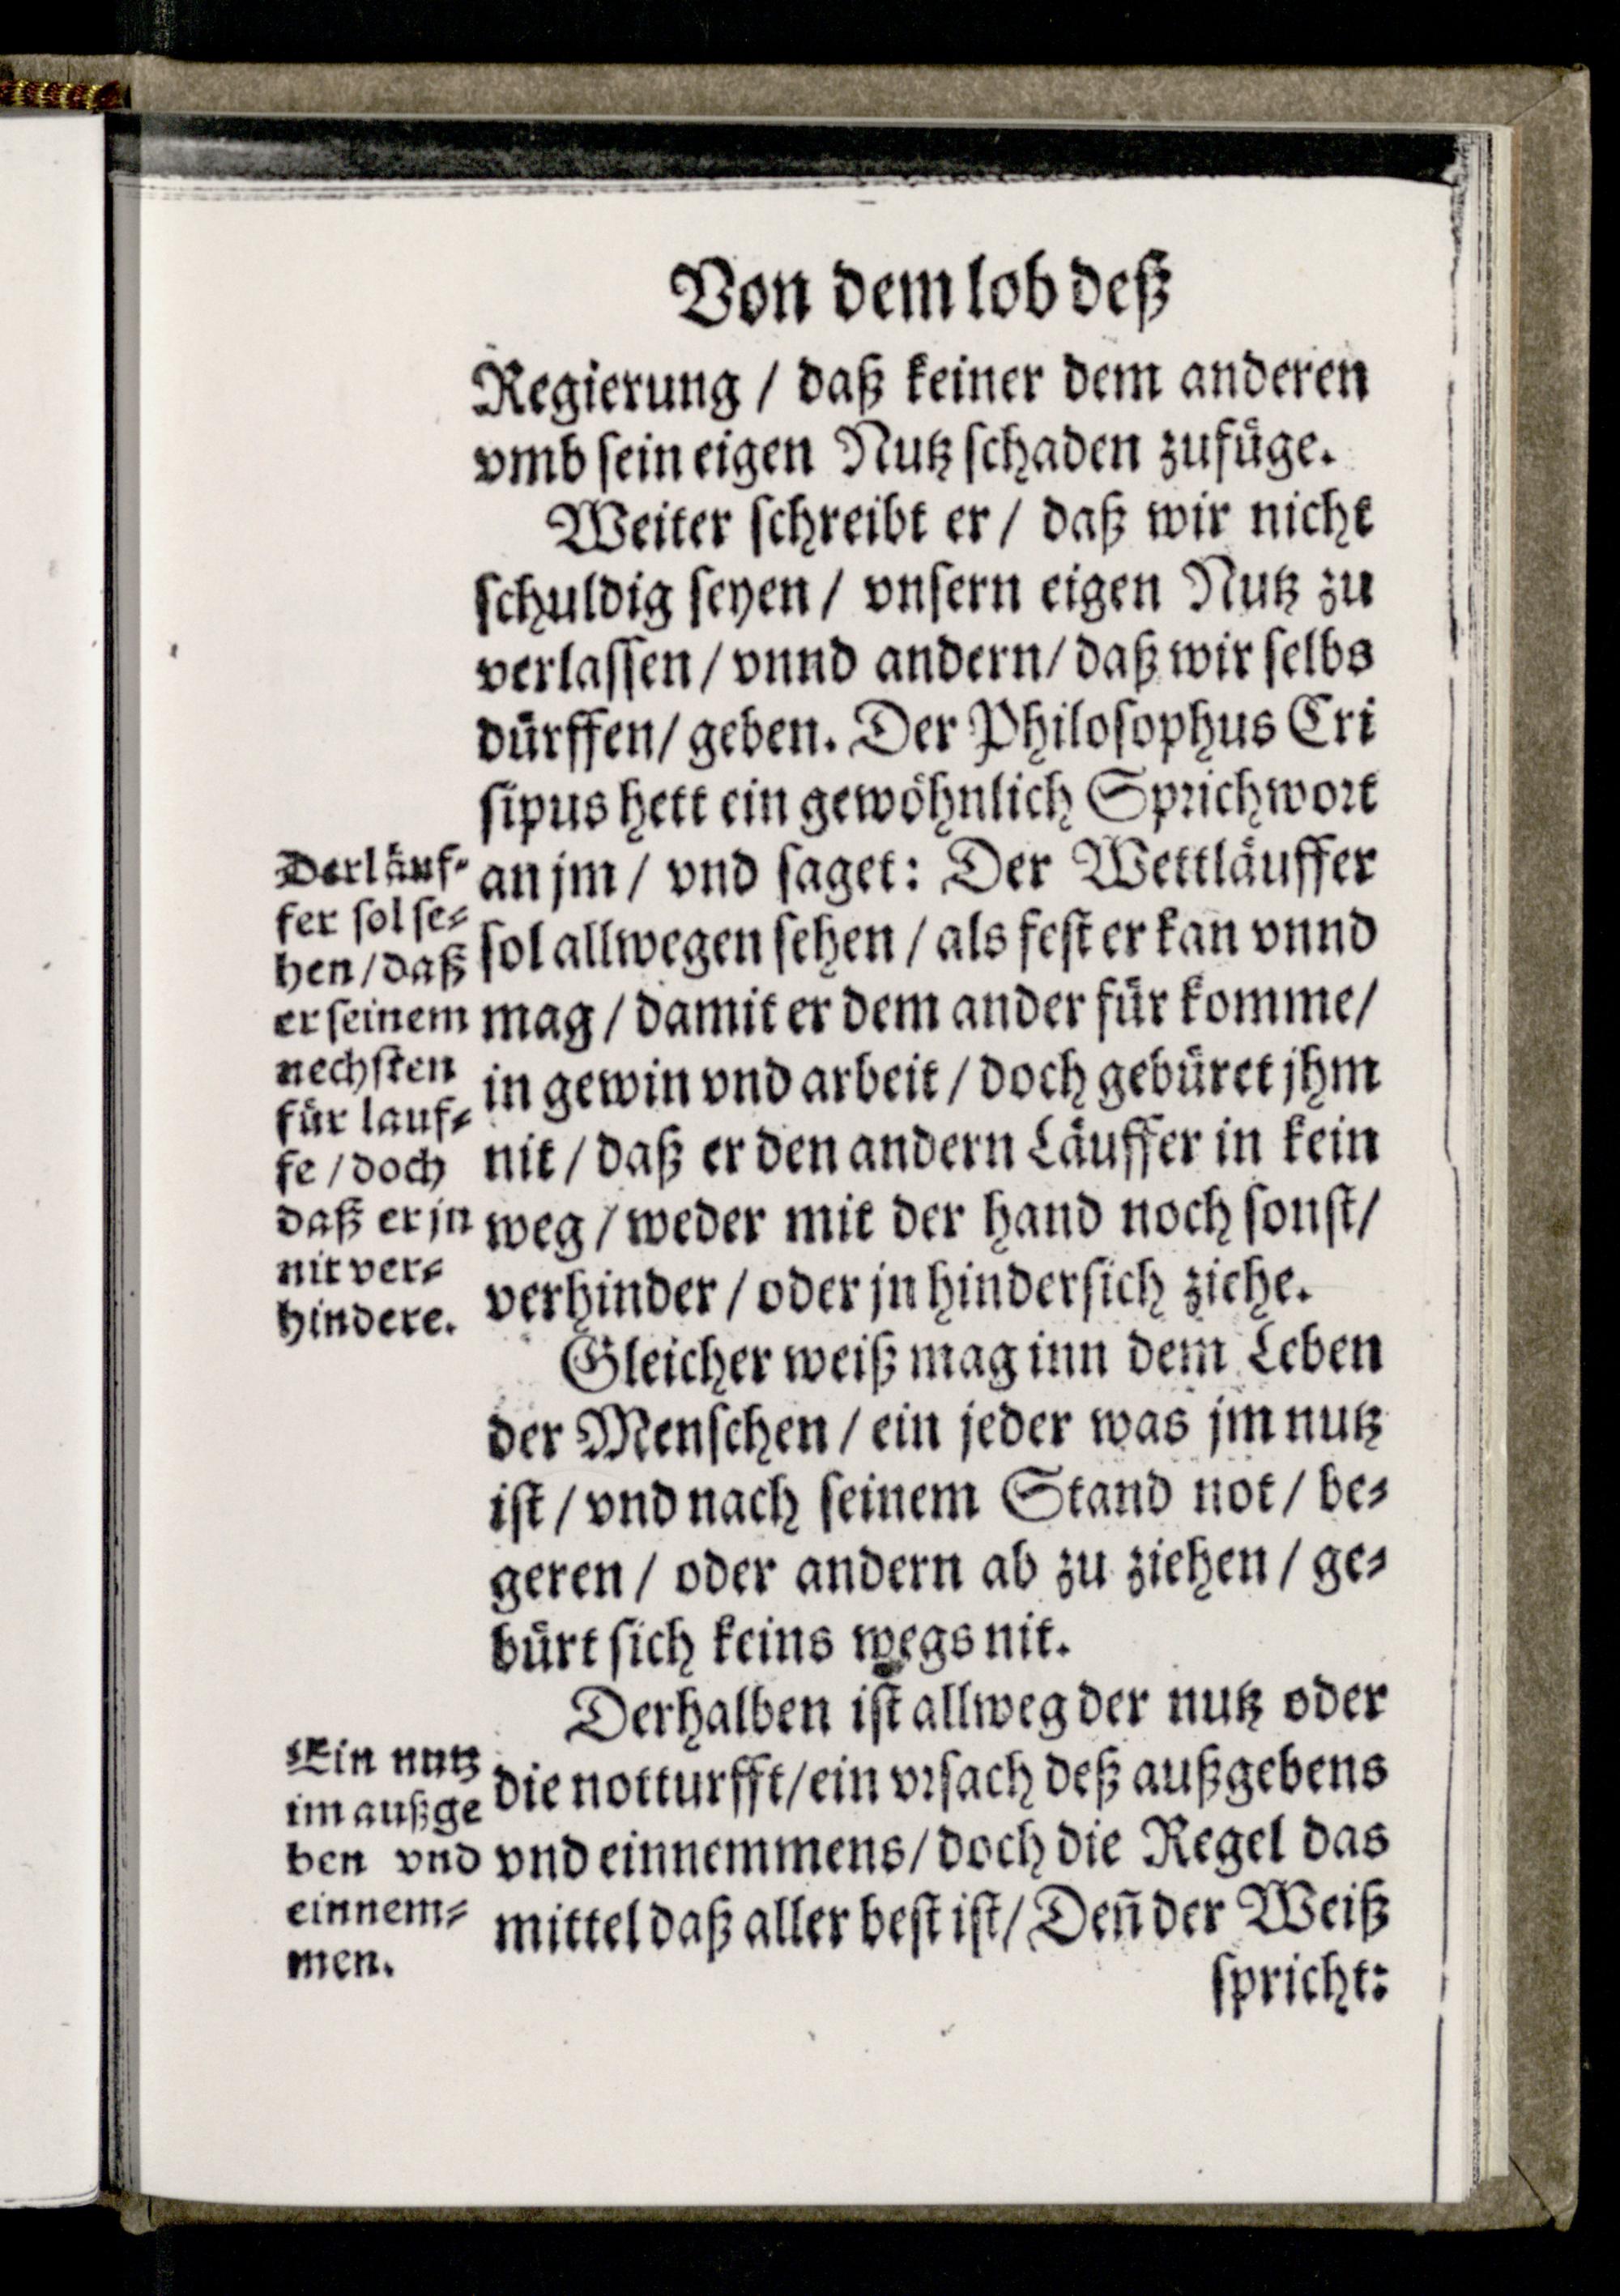 Von dem lob deß
Regierung / daß keiner dem anderen
vmb sein eigen Nutz schaden zufüge.
Weiter schreibt er / daß wir nicht
schuldig seyen / vnsern eigen Nutz zu
verlassen / vnnd andern / daß wir selbs
dürffen / geben. Der Philosophus Cri
sipus hett ein gewöhnlich Sprichwort
an jm / vnd saget: Der Wettläuffer
sol allwegen sehen / als fest er kan vnnd
mag / damit er dem ander für komme /
in gewin vnd arbeit / doch gebüret jhm
nit / daß er den andern Läuffer in kein
weg / weder mit der hand noch sonst /
verhinder / oder jn hindersich ziehe.
Gleicher weiß mag inn dem Leben
der Menschen / ein jeder was jm nutz
ist / vnd nach seinem Stand not / be-
geren / oder andern ab zu ziehen / ge-
bürt sich keins wegs nit.
Derhalben ist allweg der nutz oder
die notturfft / ein vrsach deß außgebens
vnd einnemmens / doch die Regel das
mittel daß aller best ist / Deñ der Weiß
spricht:
Der läuf-
fer sol se-
hen / daß
er seinem
nechsten
für lauf-
fe / doch
daß er jn
nit ver-
hindere.
Ein nutz
im außge
ben vnd
einnem-
men.